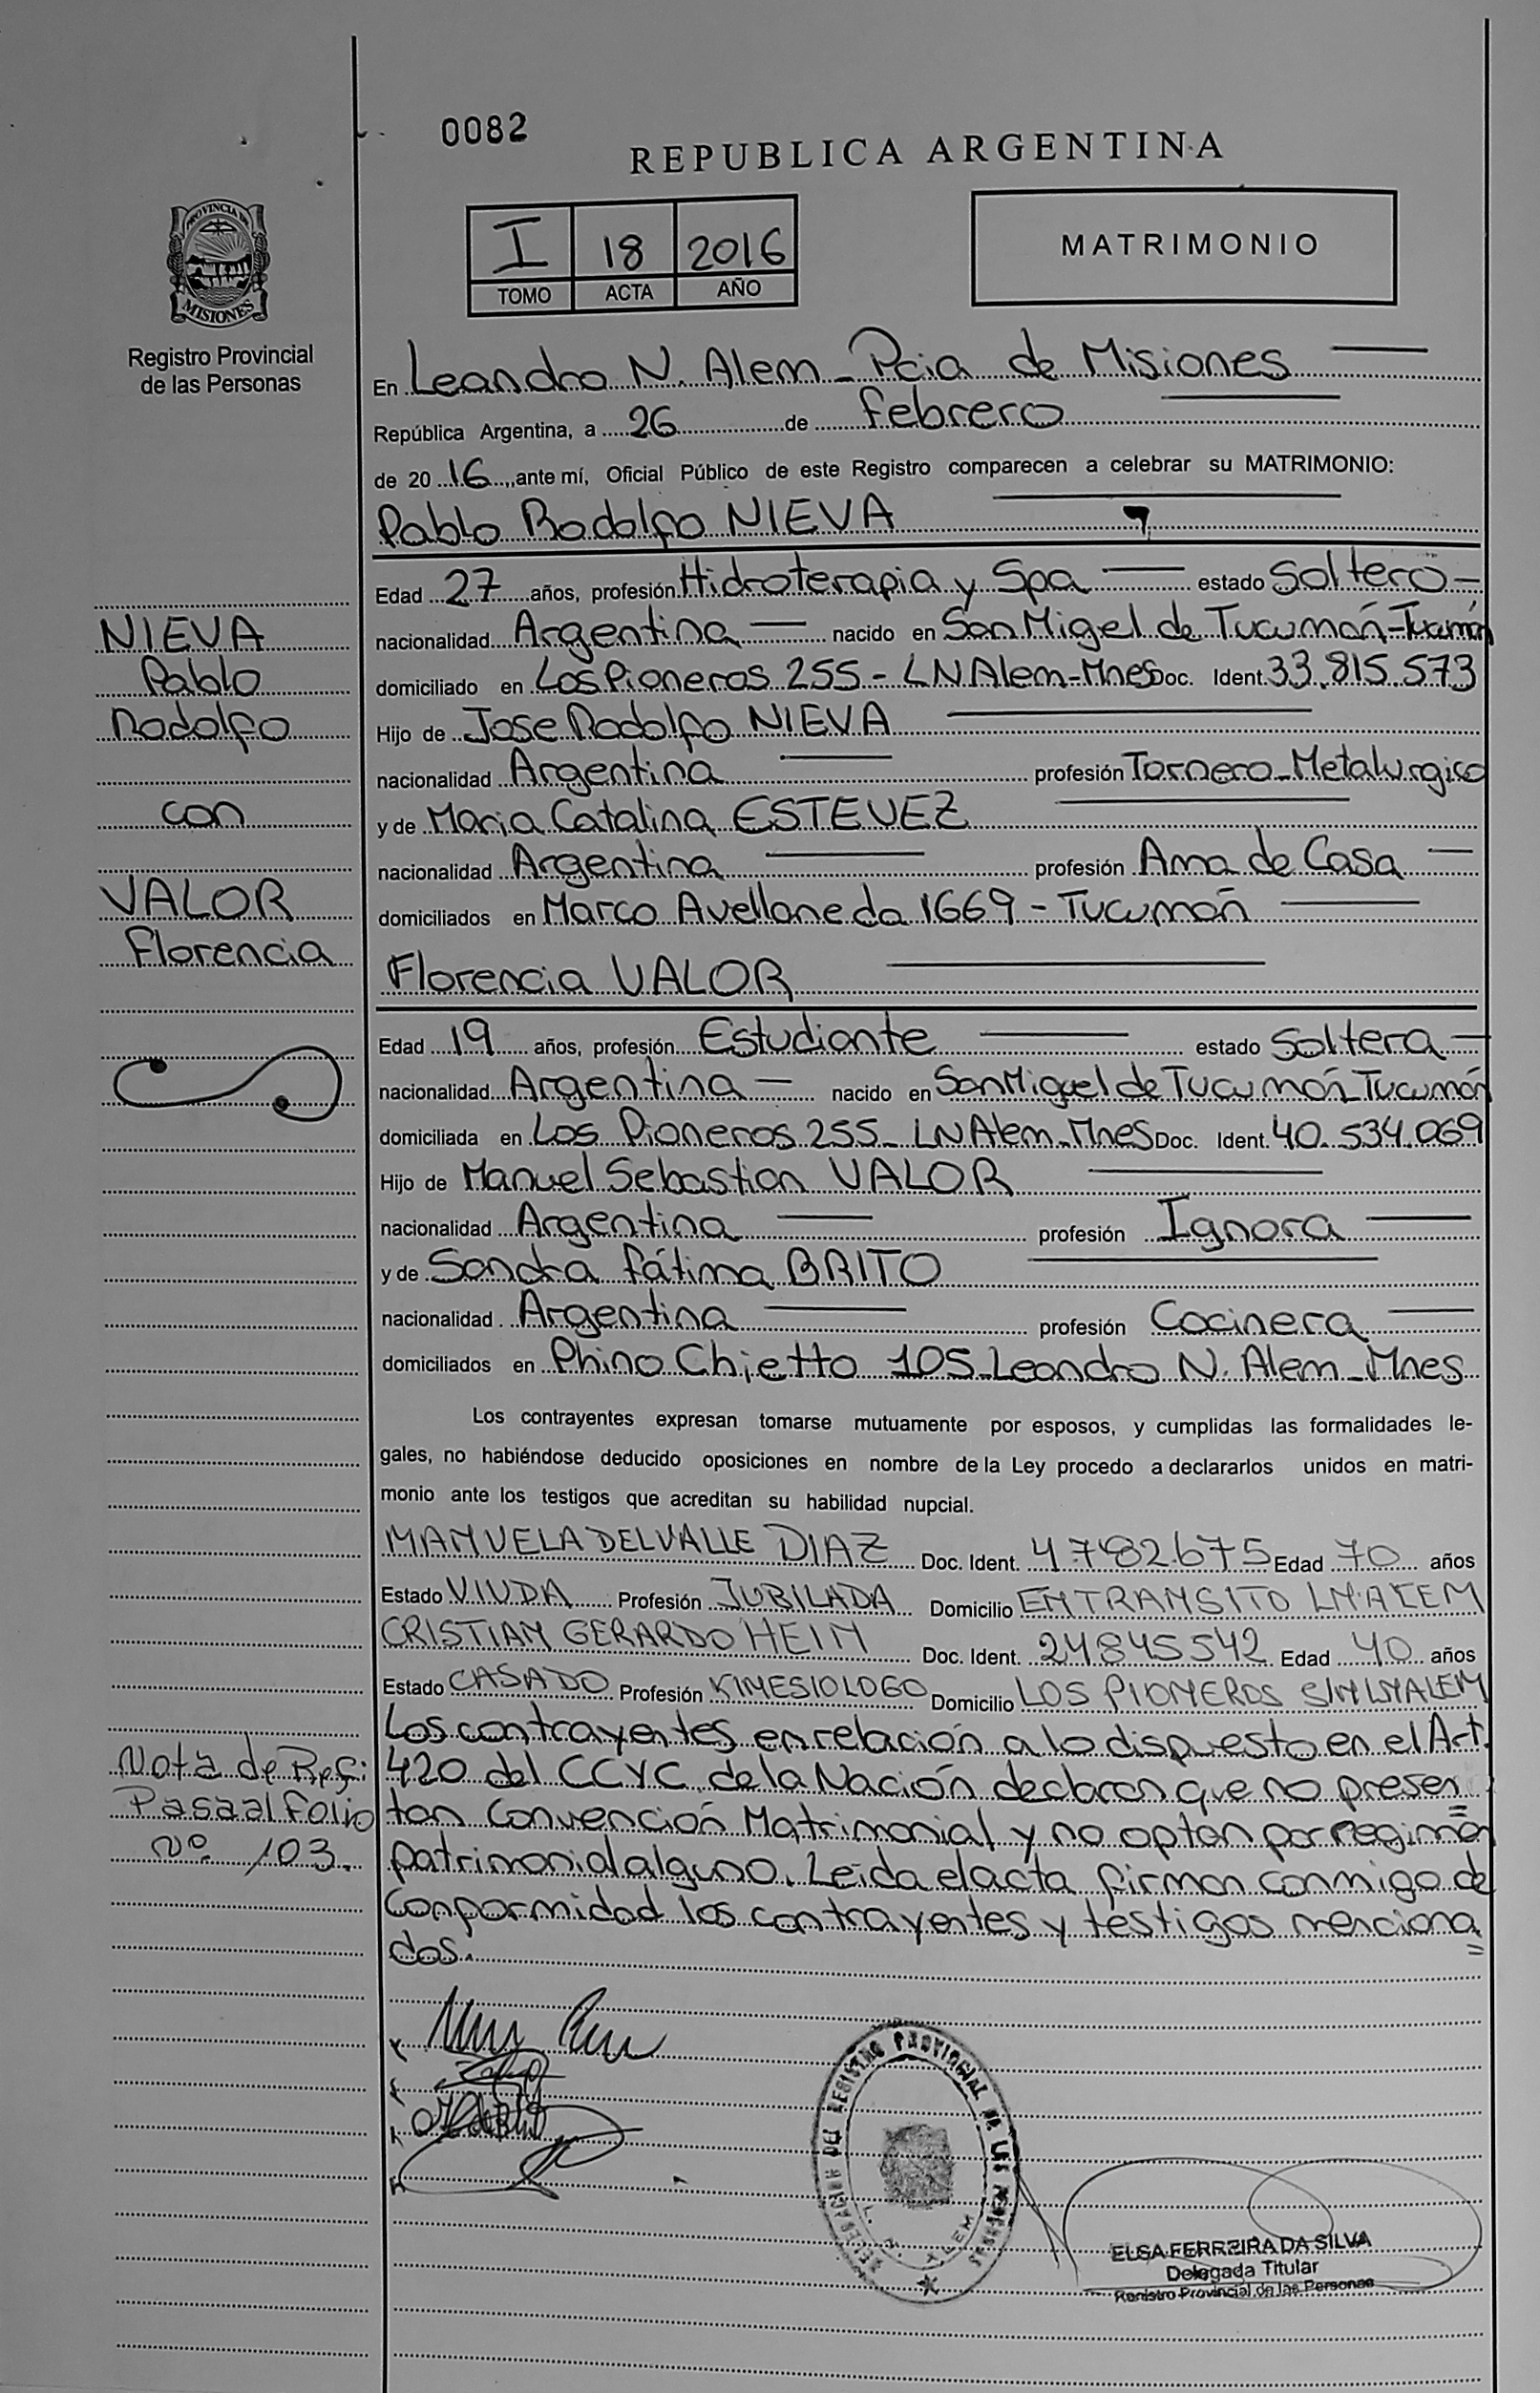 0082
REPUBLICA ARGENTINA
PROVINCIA DE
MISIONES
Registro Provincial
de las Personas
I 18 2016
TOMO ACTA AÑO
MATRIMONIO
En Leandro N. Alem - Pcia de Misiones
República Argentina, a 26 de febrero
de 2016, ante mí, Oficial Público de este Registro comparecen a celebrar su MATRIMONIO:
Pablo Rodolfo NIEVA
Edad 27 años, profesión Hidroterapia y Spa estado Soltero
nacionalidad Argentina nacido en San Migel de Tucumán - Tucumán
domiciliado en Los Pioneros 255 - LN Alem - Mnes Doc. Ident. 33.815.573
Hijo de Jose Rodolfo NIEVA
nacionalidad Argentina profesión Tornero - Metalurgico
y de Maria Catalina ESTEVEZ
nacionalidad Argentina profesión Ama de Casa
domiciliados en Marco Avellaneda 1669 - Tucumán
Florencia VALOR
Edad 19 años, profesión Estudiante estado Soltera
nacionalidad Argentina nacido en San Miguel de Tucumán Tucumán
domiciliada en Los Pioneros 255 - LN Alem - Mnes Doc. Ident. 40.534.069
Hijo de Manuel Sebastian VALOR
nacionalidad Argentina profesión Ignora
y de Sandra Fátima BRITO
nacionalidad Argentina profesión Cocinera
domiciliados en Phino Chietto 105 - Leandro N. Alem - Mnes
Los contrayentes expresan tomarse mutuamente por esposos, y cumplidas las formalidades le-
gales, no habiéndose deducido oposiciones en nombre de la Ley procedo a declararlos unidos en matri-
monio ante los testigos que acreditan su habilidad nupcial.
MANUELA DEL VALLE DIAZ Doc. Ident. 4782675 Edad 70 años
Estado VIUDA Profesión JUBILADA Domicilio EN TRANSITO LN ALEM
CRISTIAN GERARDO HEIN Doc. Ident. 24845542 Edad 40 años
Estado CASADO Profesión KINESIOLOGO Domicilio LOS PIONEROS S/N LN ALEM
Los contrayentes en relación a lo dispuesto en el Art.
420 del CCYC de la Nación declaran que no presen
tan Convención Matrimonial y no optan por regimen
patrimonial alguno. Leida el acta firman conmigo de
Conformidad los contrayentes y testigos menciona
dos.
NIEVA
Pablo
Rodolfo
con
VALOR
Florencia
Nota de Ref:
Pasa al folio
Nº 103.
DELEGACION DEL REGISTRO PROVINCIAL DE LAS PERSONAS
L. N. ALEM
ELSA FERREIRA DA SILVA
Delegada Titular
Registro Provincial de las Personas